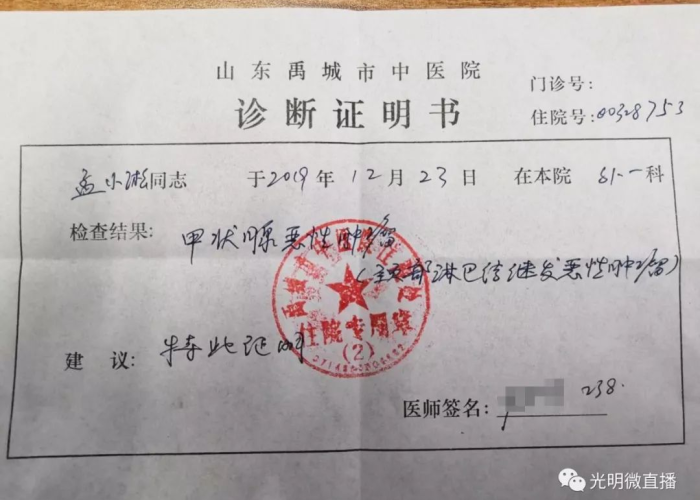 山东禹城市中医院
门诊号:
诊断证明书
住院号:00328753
孟小淞同志 于2019年12月23日 在本院 外一科
检查结果: 甲状腺恶性肿瘤
(颈部淋巴结继发恶性肿瘤)
住院专用章
(2)
建 议: 特此证明
医师签名: 238.
光明微直播